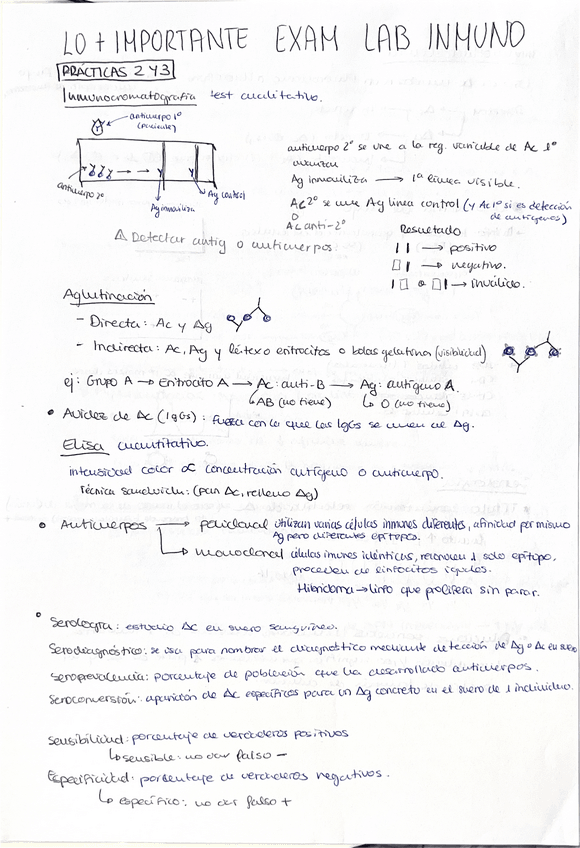 LO + IMPORTANTE EXAM LAB INMUNO
PRÁCTICAS 2 Y 3
Inmunocromatografía test cualitativo.
anticuerpo 1º
(paciente)
anticuerpo 2º
Ag inmoviliza
Ag control
anticuerpo 2º se une a la reg. variable de Ac 1º
avanzan
Ag inmoviliza → 1ª línea visible.
Ac 2º se une Ag línea control (y Ac 1º si es detección de antígenos)
o
Ac anti-2º
Δ Detectar antig o anticuerpos:
Resultado
→ positivo
→ negativo.
o → inválido.
Aglutinación
- Directa: Ac y Ag
- Indirecta: Ac, Ag y látex o eritrocitos o bolas gelatina (visibilidad)
ej: Grupo A → Eritrocito A → Ac: anti-B → Ag: antígeno A.
↳ AB (no tiene) ↳ O (no tiene)
• Avidez de Ac (IgGs): fuerza con la que las IgGs se unen al Ag.
Elisa cuantitativo.
intensidad color ∝ concentración antígeno o anticuerpo.
Técnica sandwich: (pan Ac, relleno Ag)
• Anticuerpos → policlonal utilizan varias células inmunes diferentes, afinidad por mismo
Ag pero diferentes epítopos.
↳ monoclonal células imunes idénticas, reconocen 1 solo epítopo,
proceden de linfocitos iguales.
Hibridoma → linfo que prolifera sin parar.
• Serología: estudio Ac en suero sanguíneo.
Serodiagnóstico: se usa para nombrar el diagnóstico mediante detección de Ag o Ac en suero
Seroprevalencia: porcentaje de población que ha desarrollado anticuerpos.
Seroconversión: aparición de Ac específicos para un Ag concreto en el suero de 1 individuo.
Sensibilidad: porcentaje de verdaderos positivos
↳ sensible: no dar falso -
Especificidad: porcentaje de verdaderos negativos.
↳ específico: no dar falso +